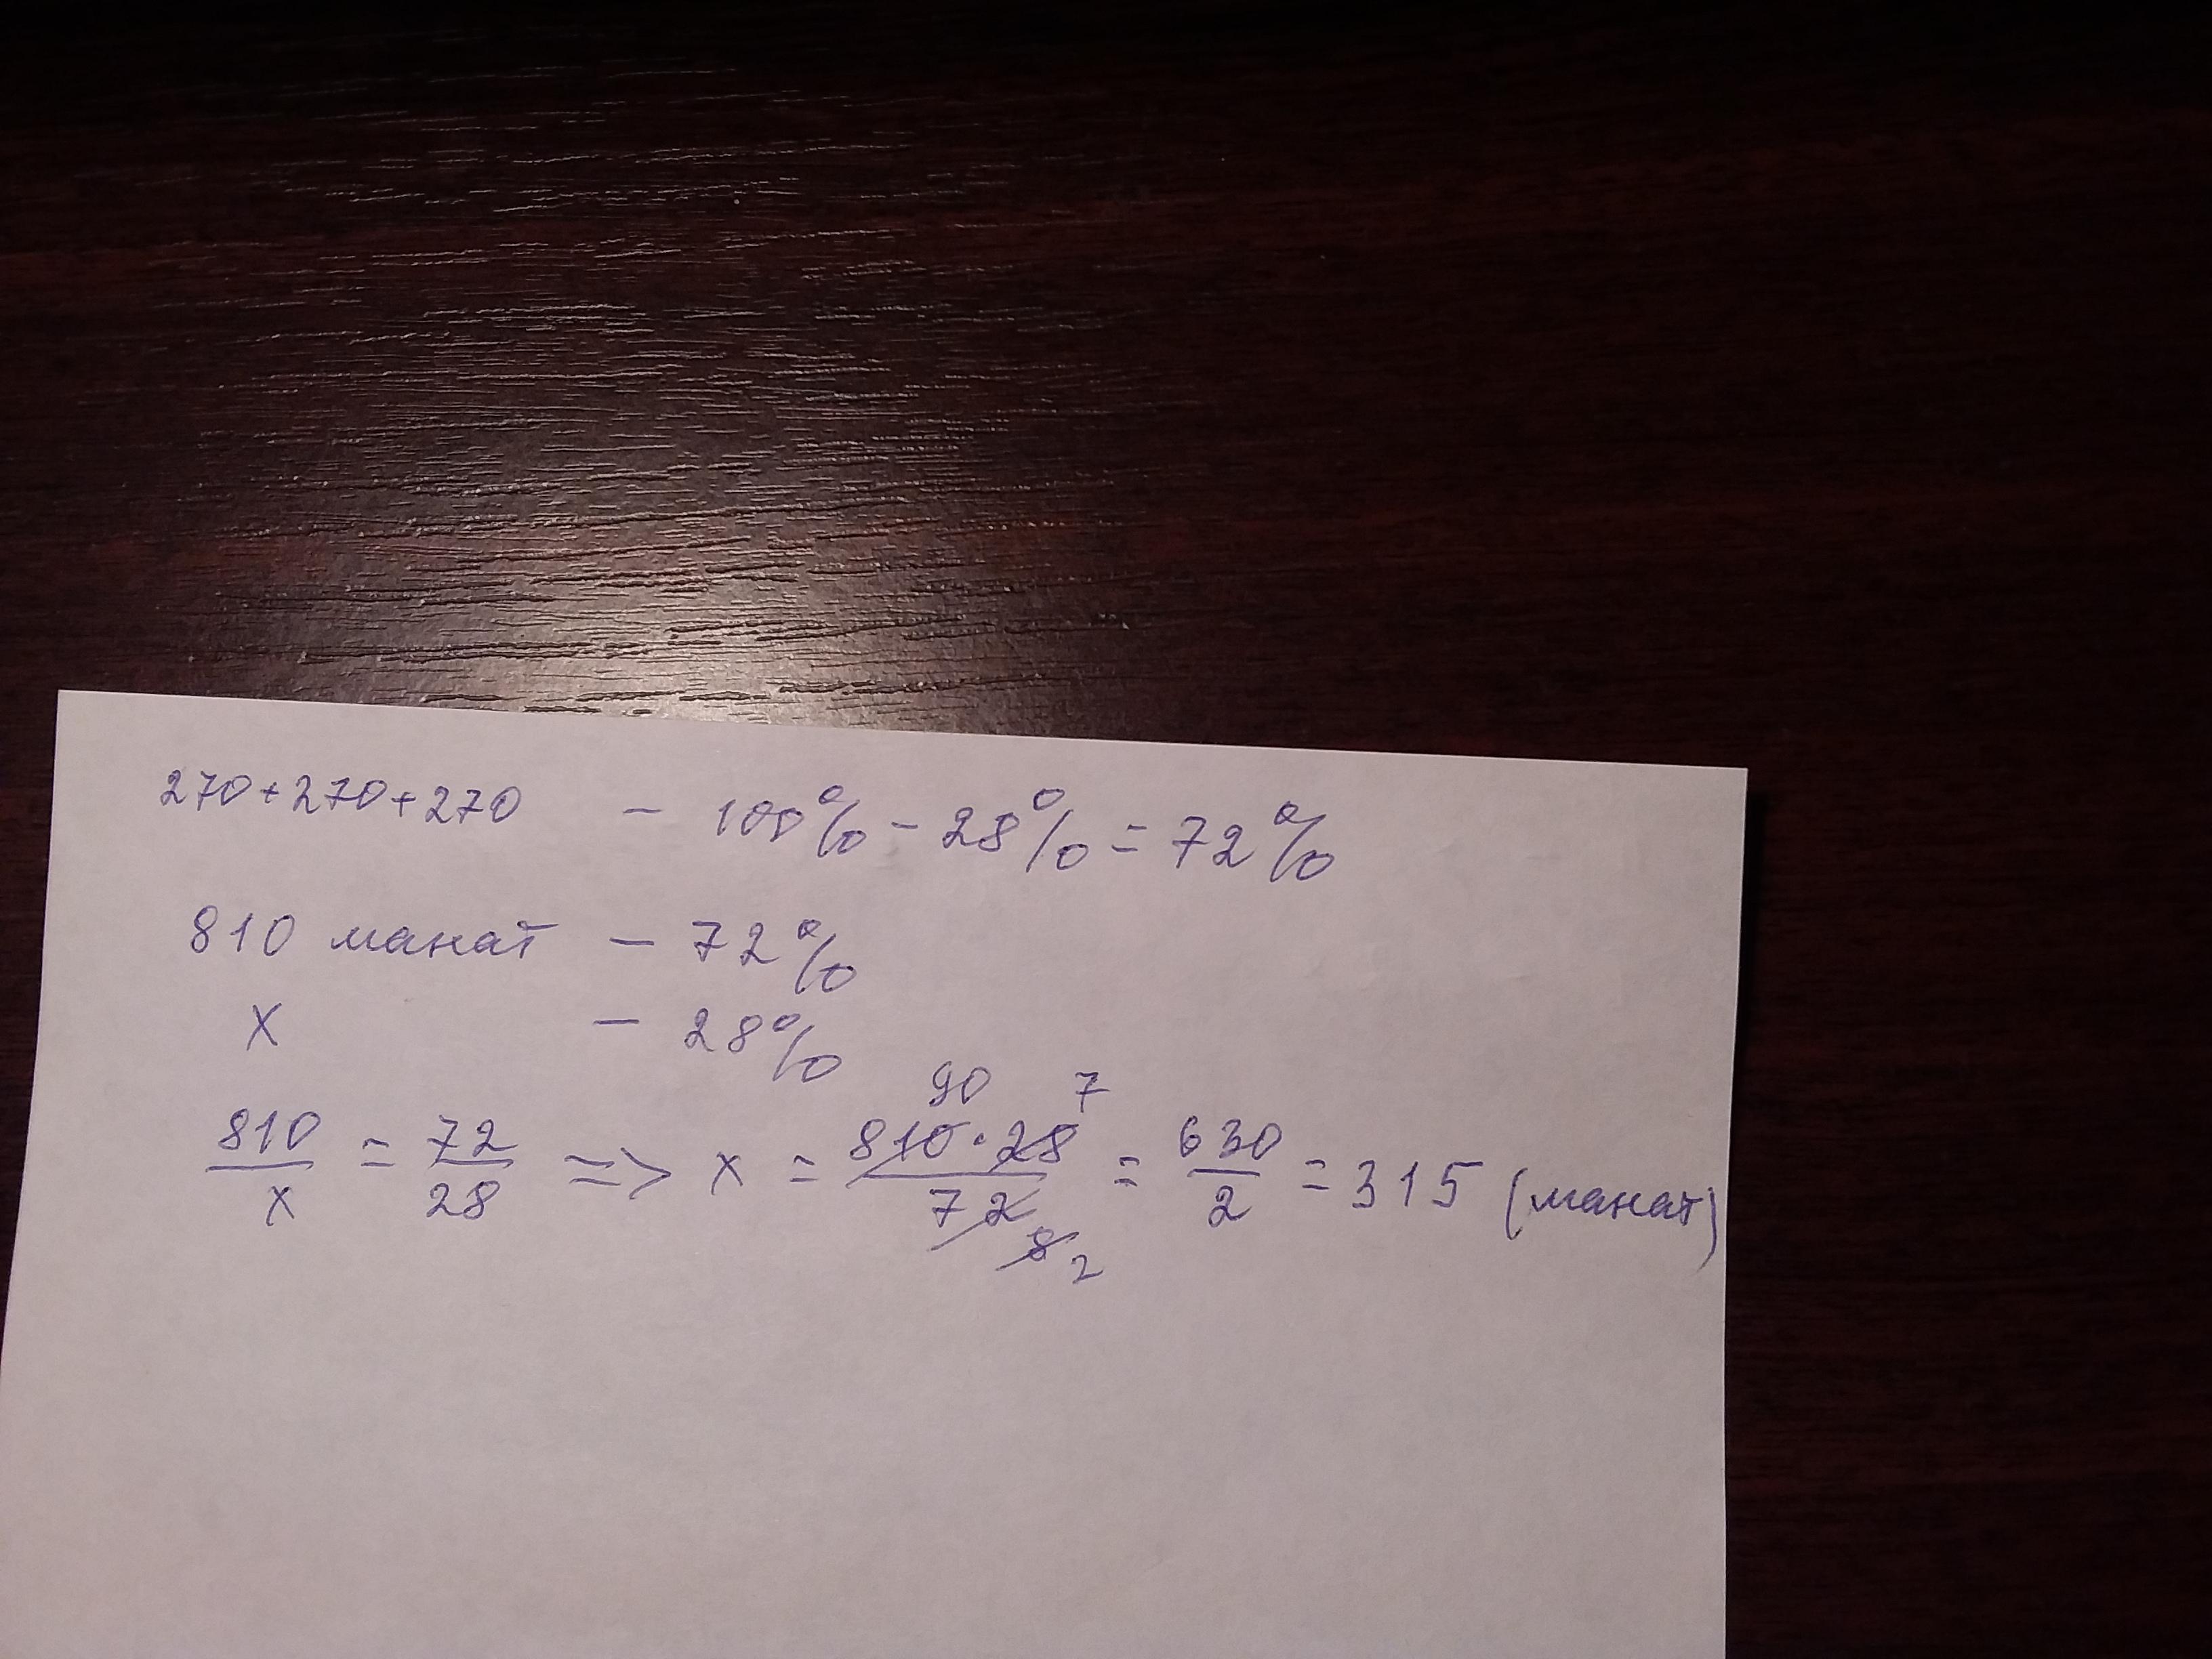 270+270+270 - 100% - 28% = 72%
810 манат - 72%
x - 28%
90 7
810/x = 72/28 => x = 810·28/72 = 630/2 = 315 (манат)
8 2